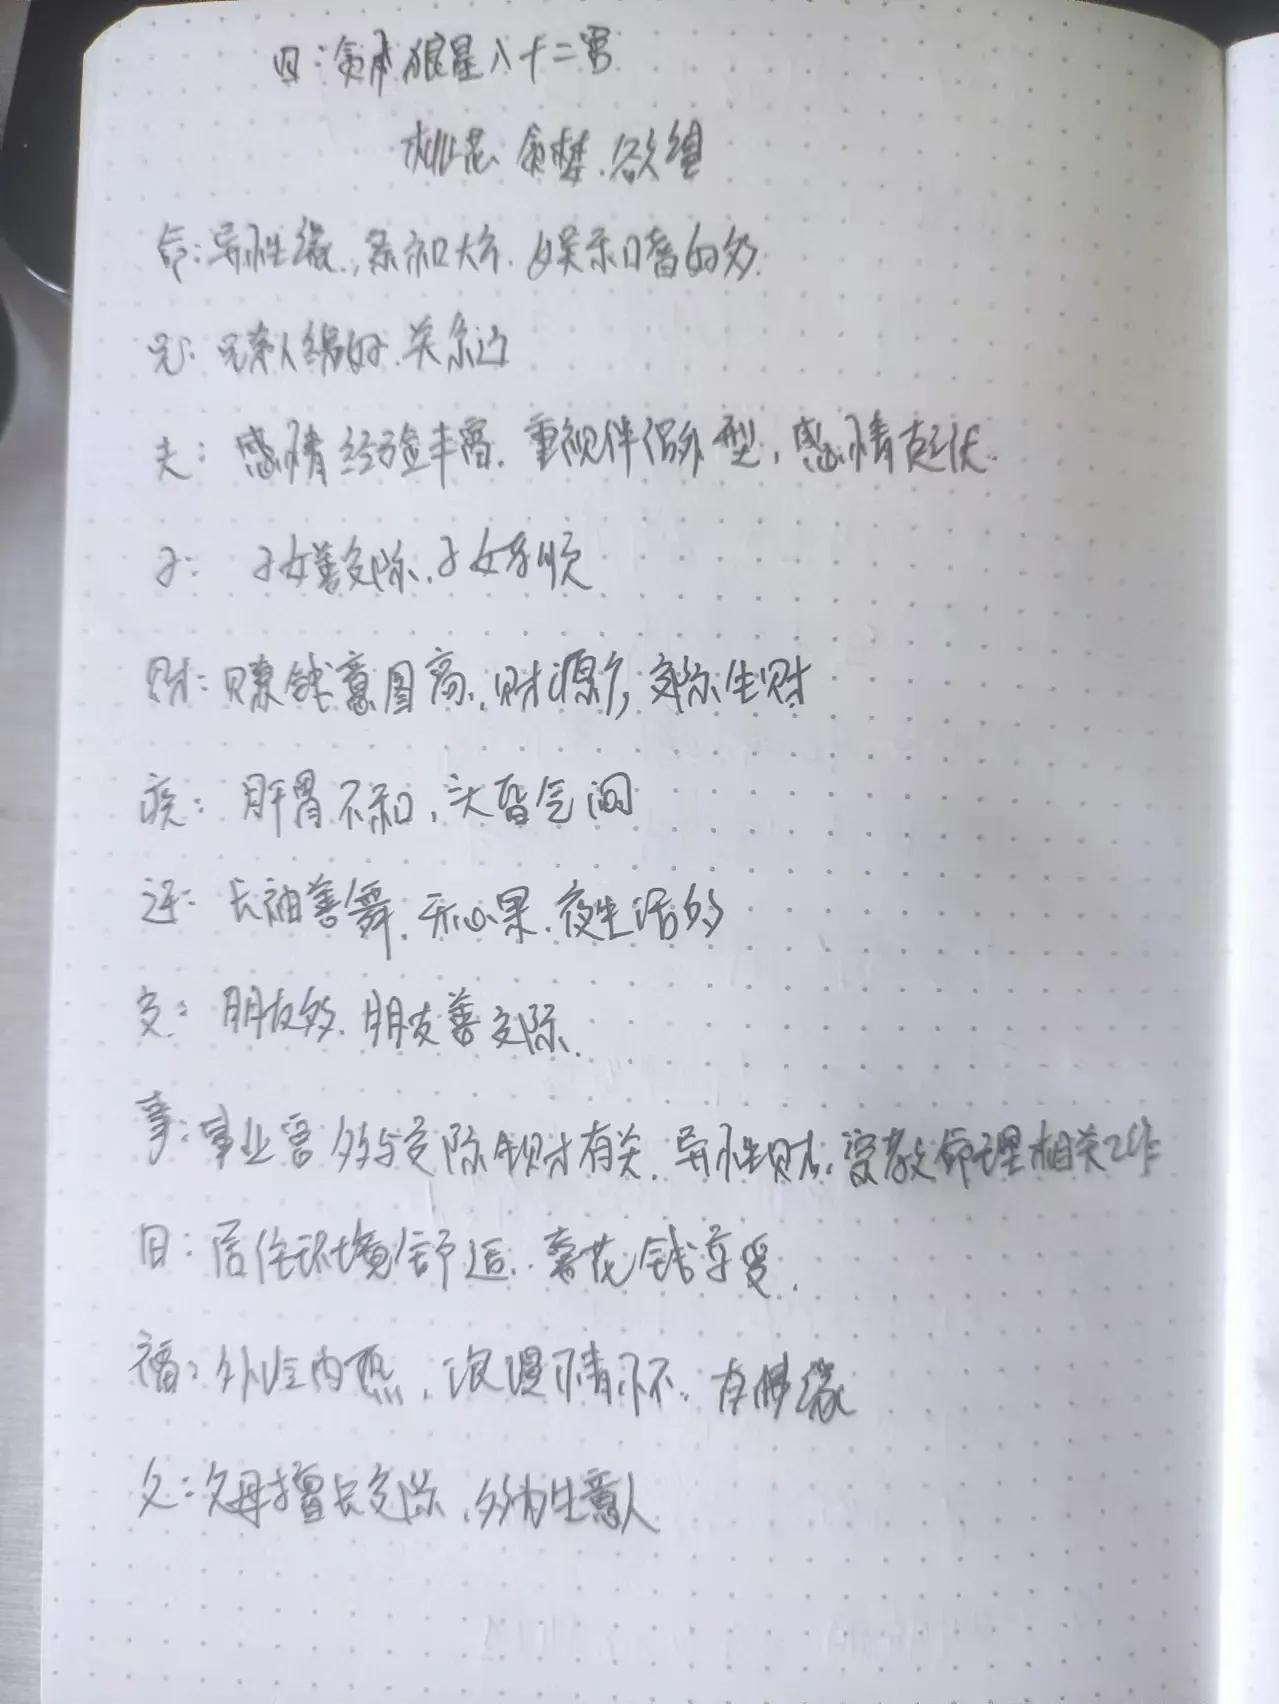 四：贪狼星入十二宫
桃花、贪婪、欲望
命：异性缘，亲和大方、娱乐口福好多
兄：兄弟人缘好、关系近
夫：感情经验丰富、重视伴侣外型，感情起伏
子：子女善交际、子女孝顺
财：赚钱意图高，财源广，交际生财
疾：肝胃不和，头昏气闷
迁：长袖善舞、开心果、夜生活多
交：朋友多、朋友善交际
事：事业宫多与交际财有关、异性财、宗教命理相关工作
田：居住环境舒适、喜花钱享受
福：外冷内热，浪漫情怀、有佛缘
父：父母擅长交际，多为生意人